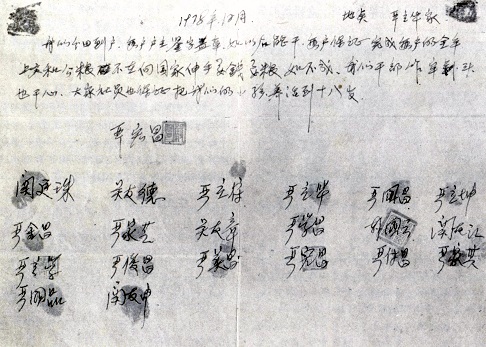 1978年12月. 地点 严立华家
我们分田到户，每户户主签字盖章，如以后能干，每户保证完成每户的全年
上交和公粮，不在向国家伸手要钱要粮，如不成，我们干部作牢刹头
也干心，大家社员也保证把我们的小孩养活到十八岁。
严宏昌
关廷珠 关友德 严立符 严立华 严国昌 严立坤
严金昌 严家芝 关友章 严学昌 韩国云 关友江
严立学 严俊昌 严美昌 严宏昌 严付昌 严家其
严国品 关友申